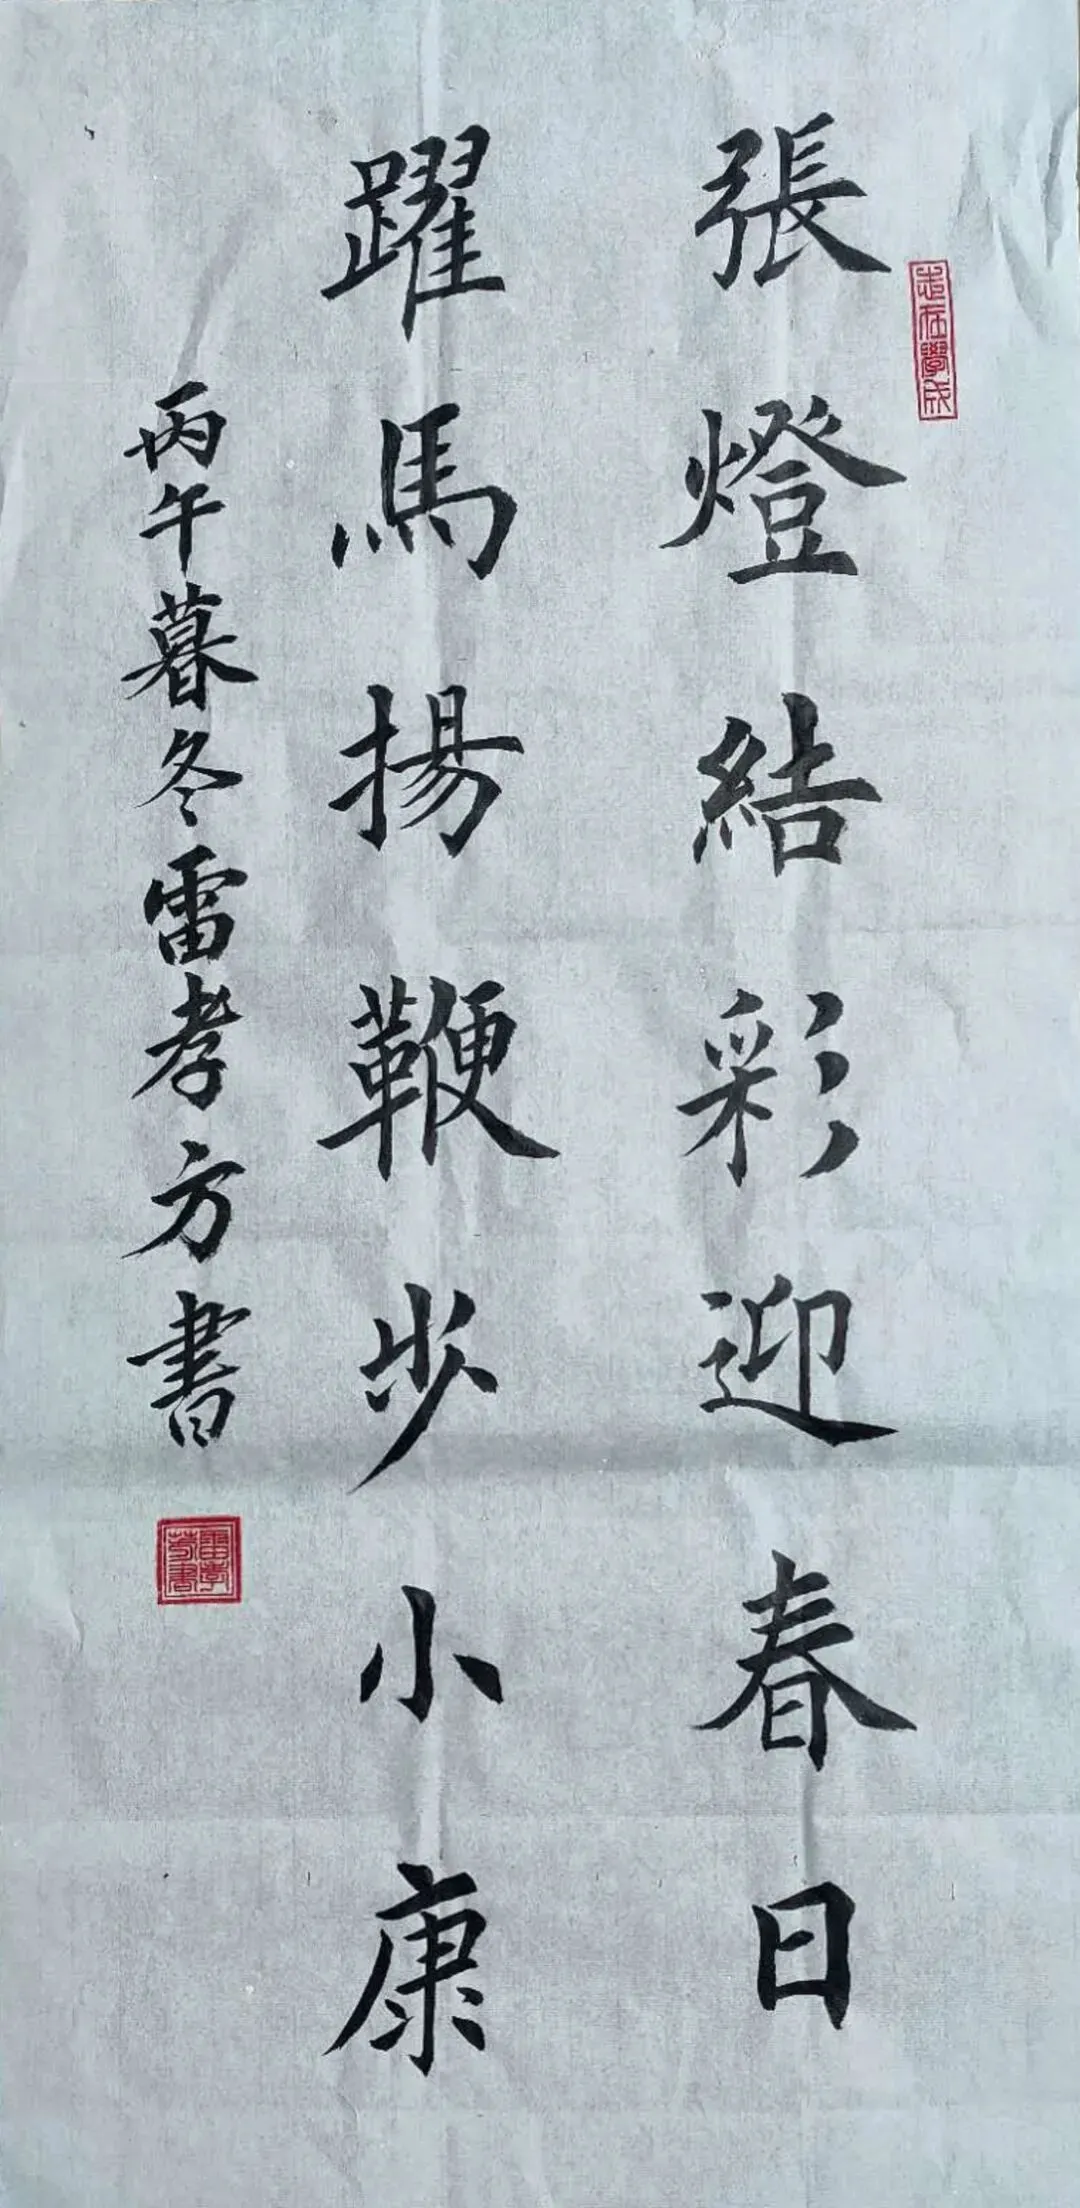 張燈結彩迎春日
躍馬揚鞭步小康
丙午暮冬雷孝方書
志在學成